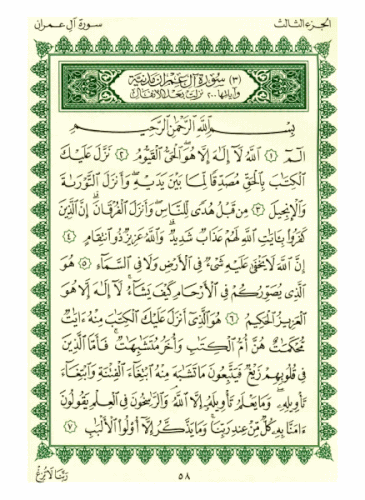 الجزء الثالث
سورة آل عمران
(٣) سُورَةُ آلِ عِمْرَانَ مَدَنِيَّة
وآياتها ٢٠٠ نزلت بعد الأنفال
بِسْمِ اللَّهِ الرَّحْمَٰنِ الرَّحِيمِ
الٓمٓ ١ اللَّهُ لَا إِلَٰهَ إِلَّا هُوَ الْحَيُّ الْقَيُّومُ ٢ نَزَّلَ عَلَيْكَ
الْكِتَٰبَ بِالْحَقِّ مُصَدِّقًا لِّمَا بَيْنَ يَدَيْهِ وَأَنزَلَ التَّوْرَىٰةَ
وَالْإِنجِيلَ ٣ مِن قَبْلُ هُدًى لِّلنَّاسِ وَأَنزَلَ الْفُرْقَانَ إِنَّ الَّذِينَ
كَفَرُوا بِـَٔايَٰتِ اللَّهِ لَهُمْ عَذَابٌ شَدِيدٌ وَاللَّهُ عَزِيزٌ ذُو انتِقَامٍ ٤
إِنَّ اللَّهَ لَا يَخْفَىٰ عَلَيْهِ شَيْءٌ فِي الْأَرْضِ وَلَا فِي السَّمَاءِ ٥ هُوَ
الَّذِي يُصَوِّرُكُمْ فِي الْأَرْحَامِ كَيْفَ يَشَاءُ لَا إِلَٰهَ إِلَّا هُوَ
الْعَزِيزُ الْحَكِيمُ ٦ هُوَ الَّذِي أَنزَلَ عَلَيْكَ الْكِتَٰبَ مِنْهُ ءَايَٰتٌ
مُّحْكَمَٰتٌ هُنَّ أُمُّ الْكِتَٰبِ وَأُخَرُ مُتَشَٰبِهَٰتٌ فَأَمَّا الَّذِينَ
فِي قُلُوبِهِمْ زَيْغٌ فَيَتَّبِعُونَ مَا تَشَٰبَهَ مِنْهُ ابْتِغَاءَ الْفِتْنَةِ وَابْتِغَاءَ
تَأْوِيلِهِ وَمَا يَعْلَمُ تَأْوِيلَهُ إِلَّا اللَّهُ وَالرَّٰسِخُونَ فِي الْعِلْمِ يَقُولُونَ
ءَامَنَّا بِهِ كُلٌّ مِّنْ عِندِ رَبِّنَا وَمَا يَذَّكَّرُ إِلَّا أُولُوا الْأَلْبَٰبِ ٧
رَبَّنَا لَا تُزِغْ
٥٨